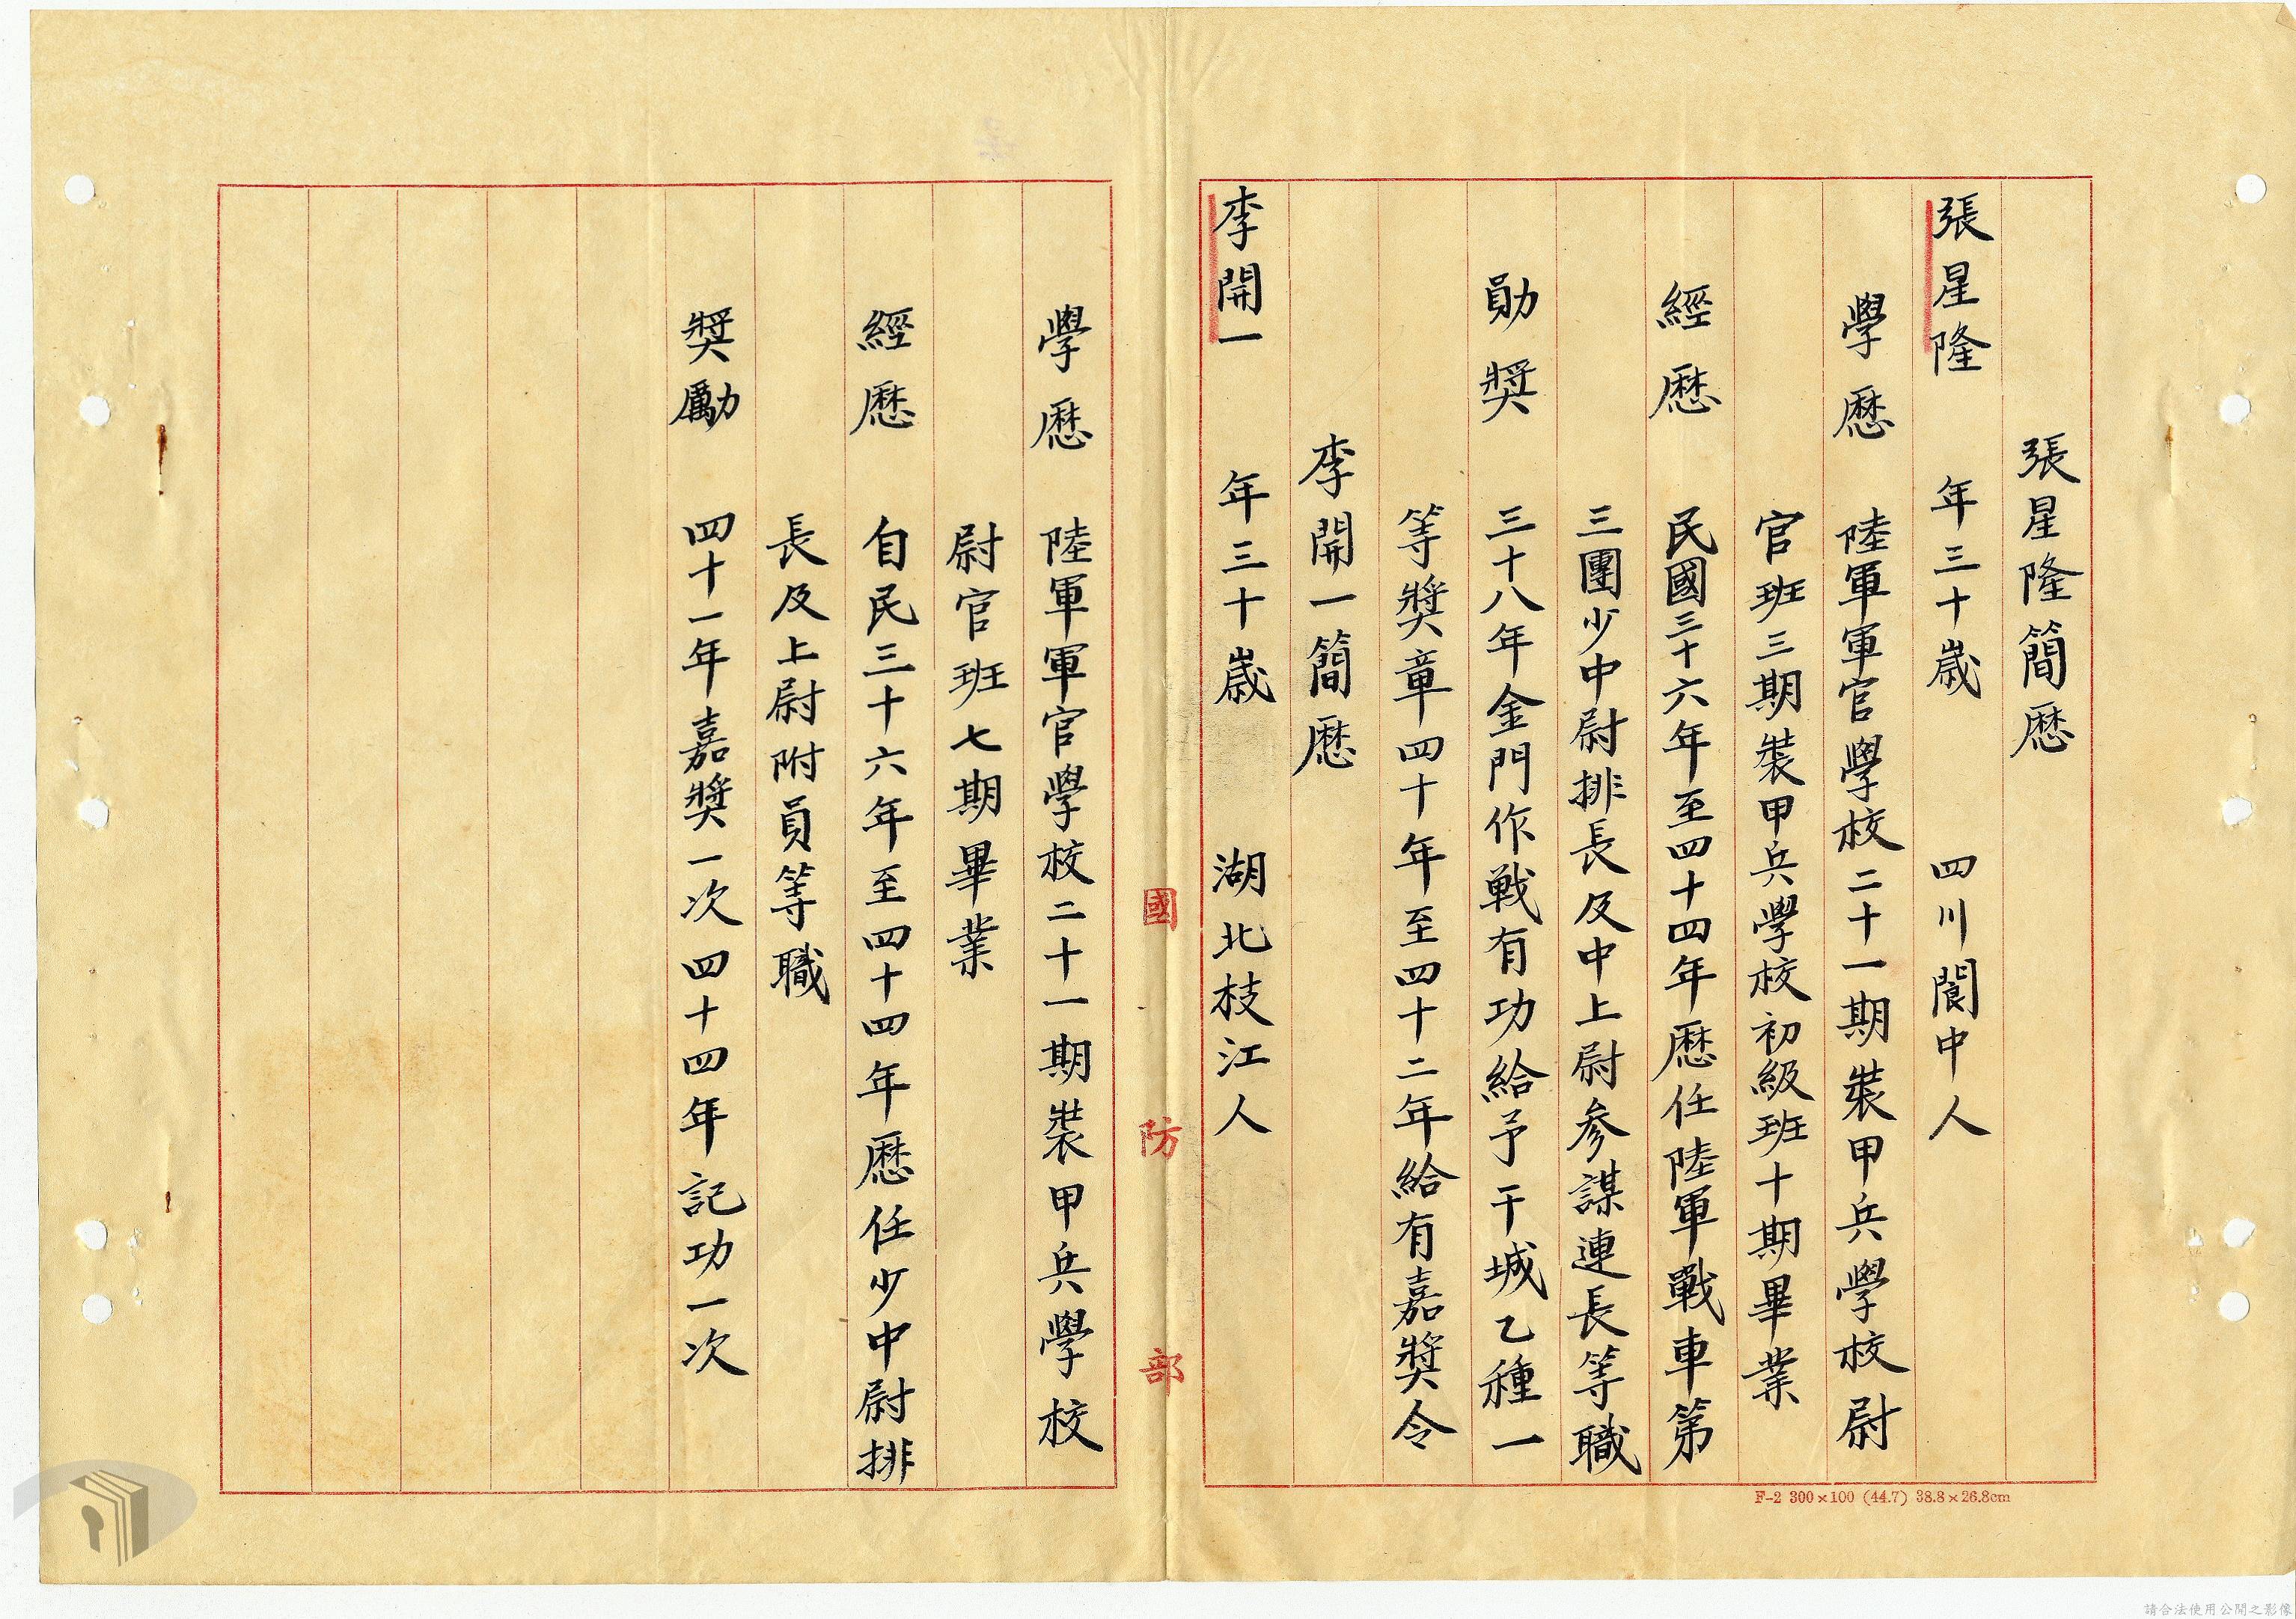 張星隆簡歷
張星隆 年三十歲 四川閬中人
學歷 陸軍軍官學校二十一期裝甲兵學校尉
官班三期裝甲兵學校初級班十期畢業
經歷 民國三十六年至四十四年歷任陸軍戰車第
三團少中尉排長及中上尉参謀連長等職
勛獎 三十八年金門作戰有功給予干城乙種一
等獎章四十年至四十二年給有嘉獎令
李開一簡歷
李開一 年三十歲 湖北枝江人
國防部
學歷 陸軍軍官學校二十一期裝甲兵學校
尉官班七期畢業
經歷 自民三十六年至四十四年歷任少中尉排
長及上尉附員等職
獎勵 四十一年嘉獎一次四十四年記功一次
F-2 300×100 (44.7) 38.8×26.8cm
請合法使用公開之影像